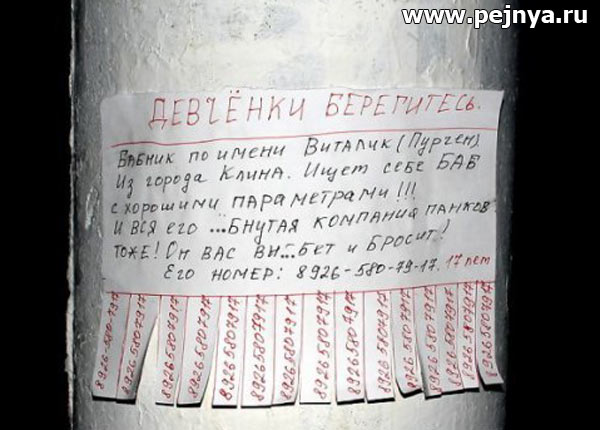 www.pejnya.ru
ДЕВЧЁНКИ БЕРЕГИТЕСЬ.
БАБНИК ПО ИМЕНИ ВИТАЛИК (ПУРГЕН)
ИЗ ГОРОДА КЛИНА. ИЩЕТ СЕБЕ БАБ
С ХОРОШИМИ ПАРАМЕТРАМИ!!!
И ВСЯ ЕГО ...БНУТАЯ КОМПАНИЯ ПАНКОВ
ТОЖЕ! ОН ВАС ВЫ...БЕТ И БРОСИТ!
ЕГО НОМЕР: 8926-580-79-17. 17 лет
8926-580-7917
89265807917
89265807917
89265807917
89265807917
89265807917
89265807917
89265807917
89265807917
89265807917
89265807917
89265807917
89265807917